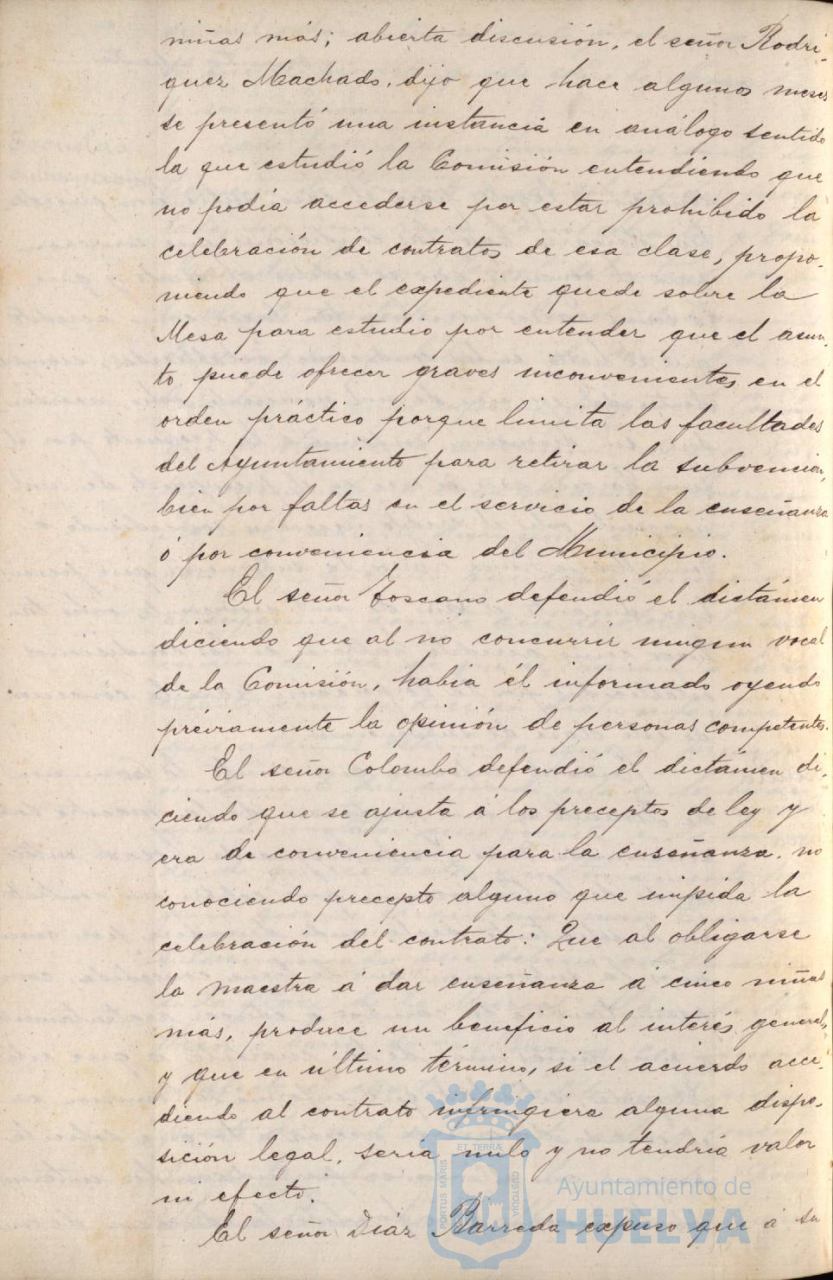 niñas más; abierta discusión, el señor Rodri-
guez Machado, dijo que hace algunos meses
se presentó una instancia en análogo sentido
la que estudió la Comisión entendiendo que
no podía accederse por estar prohibido la
celebración de contratos de esa clase, propo-
niendo que el expediente quede sobre la
Mesa para estudio por entender que el asun-
to puede ofrecer graves inconvenientes en el
orden práctico porque limita las facultades
del Ayuntamiento para retirar la subvención,
bien por faltas en el servicio de la enseñanza
ó por conveniencia del Municipio.
El señor Toscano defendió el dictámen
diciendo que al no concurrir ningun vocal
de la Comisión, habia él informado oyendo
préviamente la opinión de personas competentes.
El señor Colombo defendió el dictámen di-
ciendo que se ajusta á los preceptos de ley y
era de conveniencia para la enseñanza, no
conociendo precepto alguno que impida la
celebración del contrato: Que al obligarse
la maestra á dar enseñanza á cinco niñas
más, produce un beneficio al interés general,
y que en último término, si el acuerdo acce-
diendo al contrato infringiera alguna dispo-
sición legal, seria nulo y no tendría valor
ni efecto.
El señor Díaz Barreda expuso que á su
PORTUS MARIS ET TERRÆ CUSTODIA
Ayuntamiento de
HUELVA